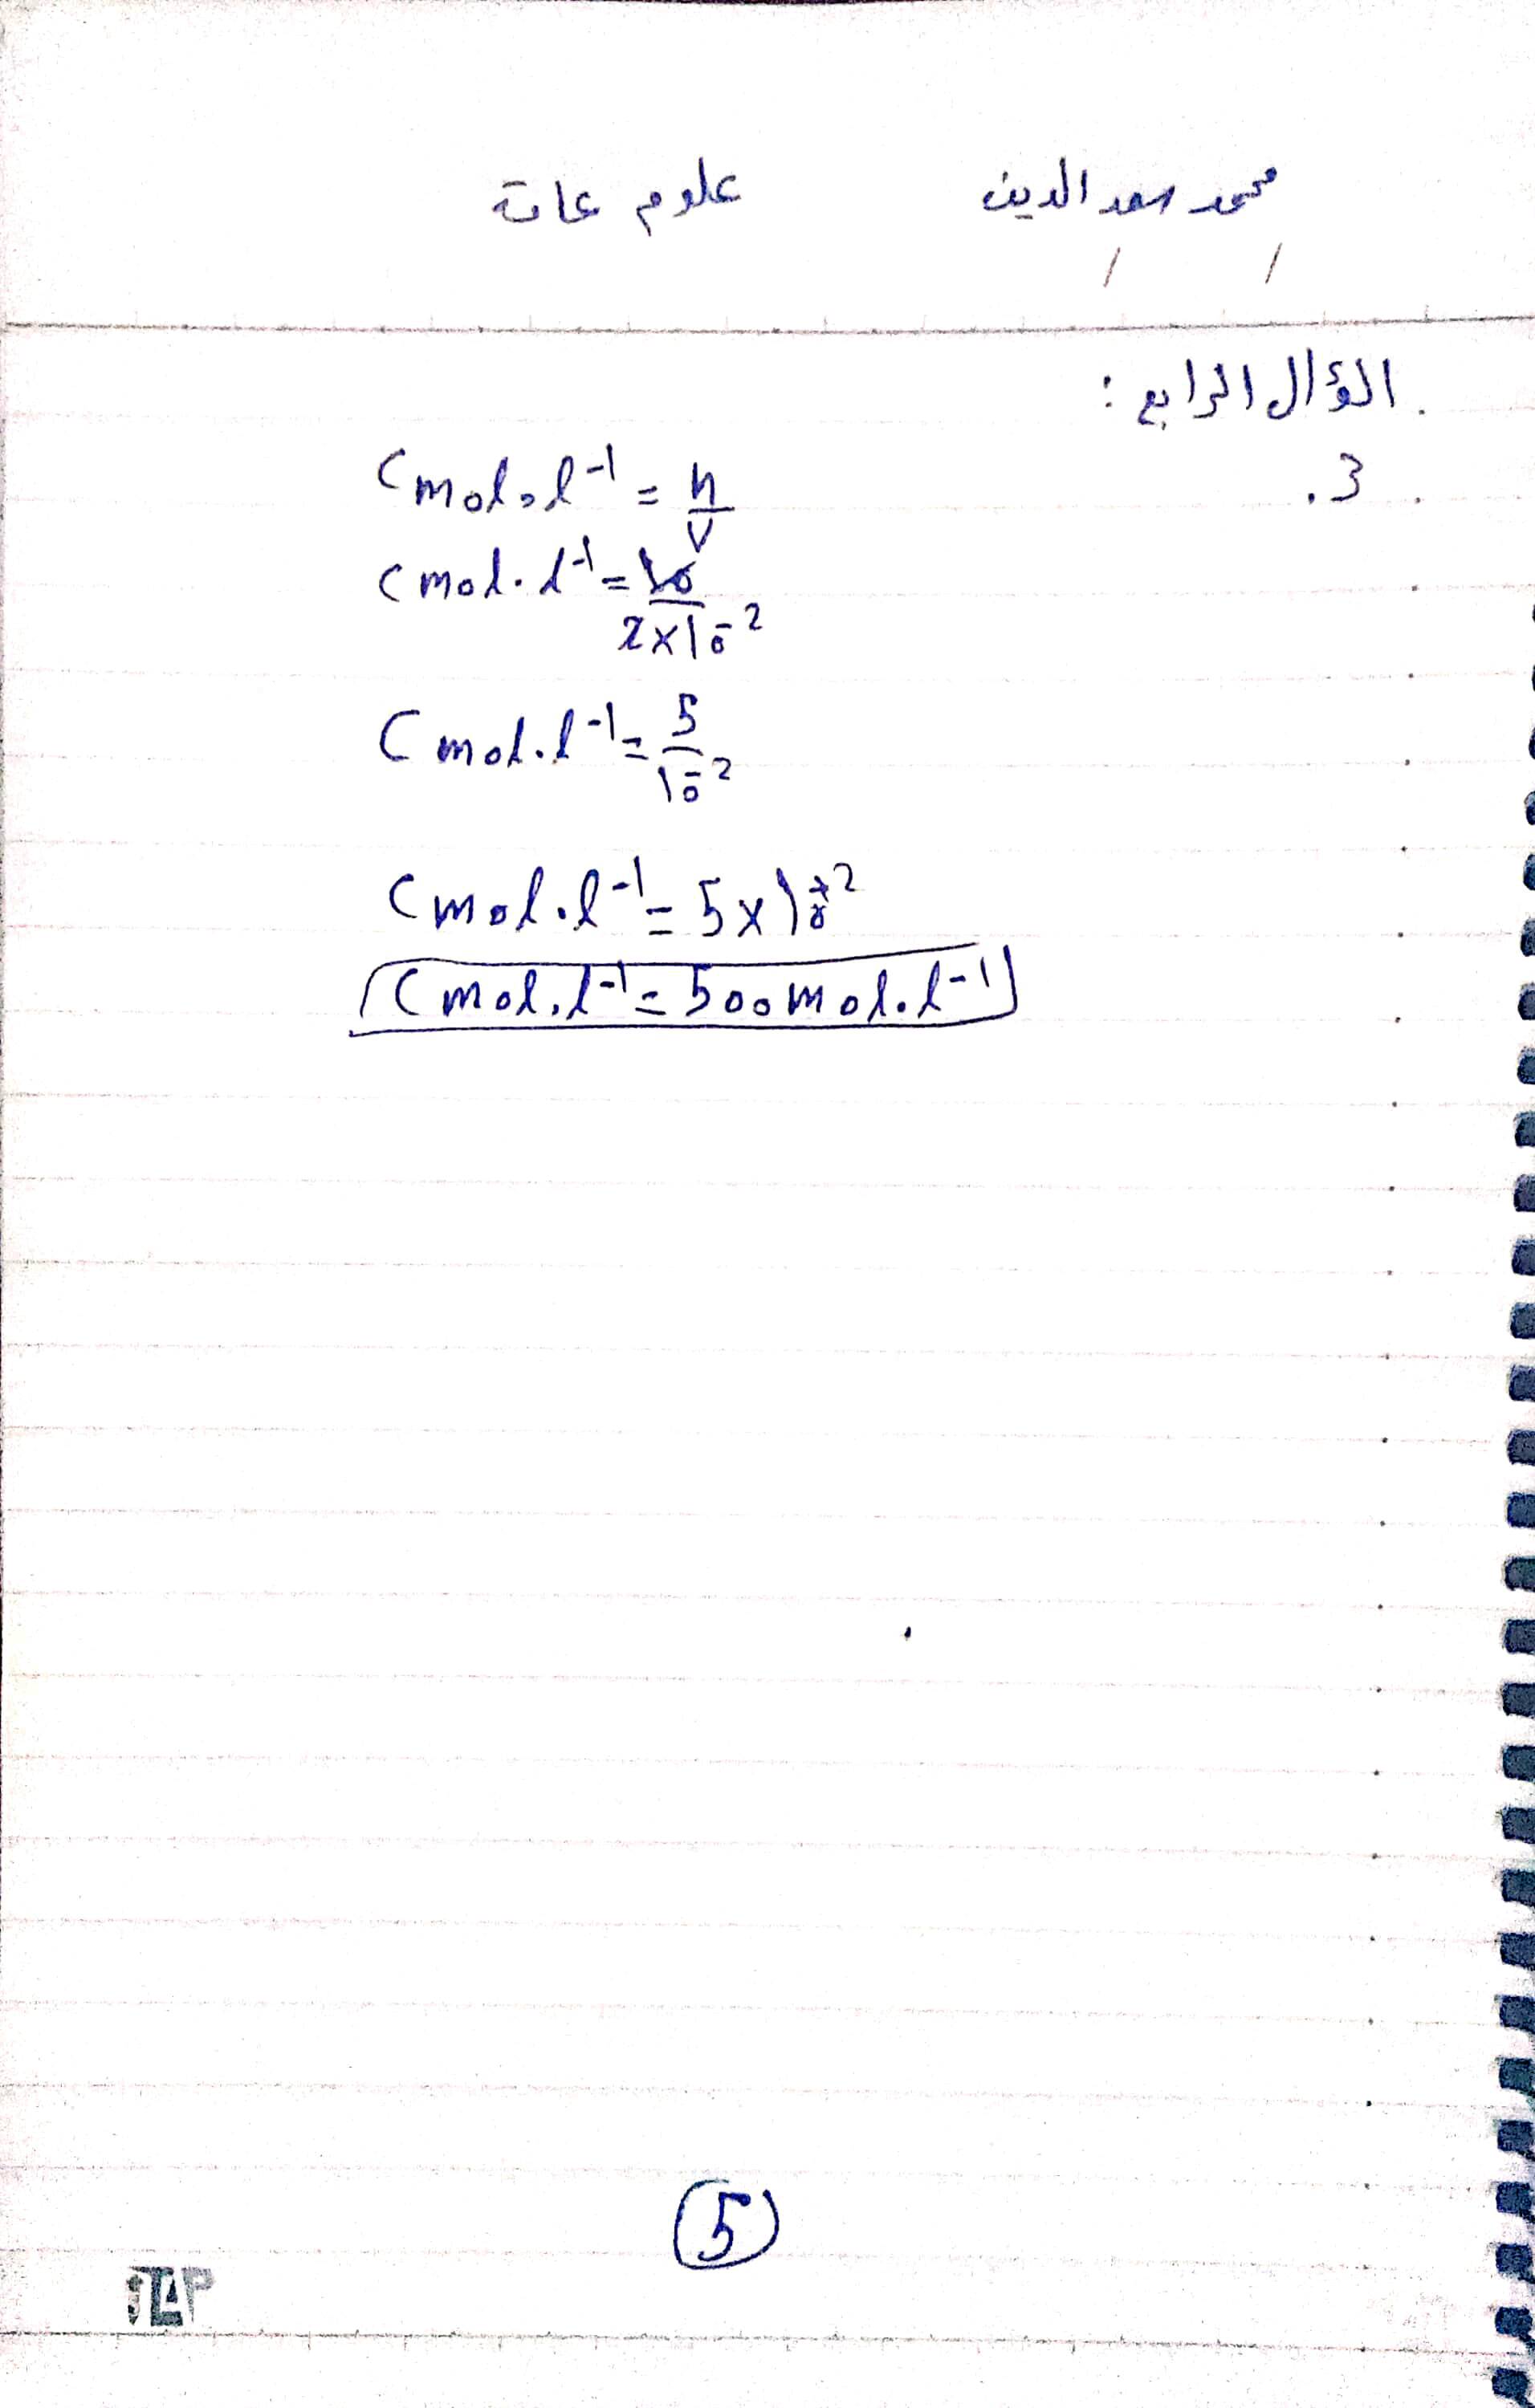 محمد سعد الدين علوم عامة
السؤال الرابع :
3.
C mol.l⁻¹ = n/V
C mol.l⁻¹ = 10/2x10⁻²
C mol.l⁻¹ = 5/10⁻²
C mol.l⁻¹ = 5x10⁺²
C mol.l⁻¹ = 500 mol.l⁻¹
5